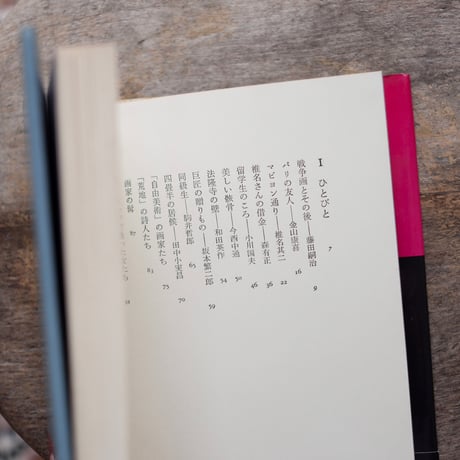 I ひとびと 7
戦争画とその後——藤田嗣治 9
パリの友人——金山康喜 16
マビヨン通り——椎名其二 22
椎名さんの借金——森有正 36
留学生のころ——小川国夫 46
美しい骸骨——今西中通 50
法隆寺の壁——和田英作 54
巨匠の贈りもの——坂本繁二郎 59
同級生——駒井哲郎 70
四畳半の居候——田中小実昌 75
「自由美術」の画家たち 83
「荒地」の詩人たち 87
画家の髯